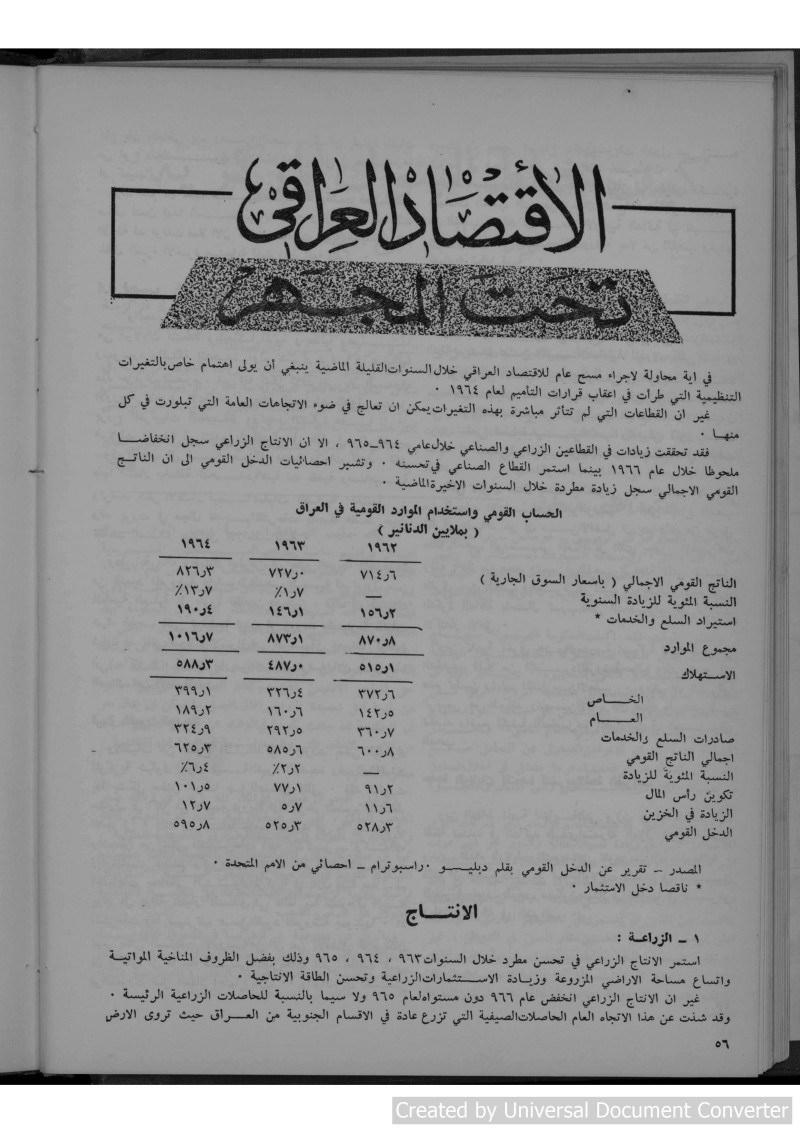 الاقتصاد العراقي
تحت المجهر
في اية محاولة لاجراء مسح عام للاقتصاد العراقي خلال السنوات القليلة الماضية ينبغي أن يولى اهتمام خاص بالتغيرات
التنظيمية التي طرأت في اعقاب قرارات التاميم لعام ١٩٦٤ ٠
غير ان القطاعات التي لم تتأثر مباشرة بهذه التغيرات يمكن ان تعالج في ضوء الاتجاهات العامة التي تبلورت في كل
منهـا ٠
فقد تحققت زيادات في القطاعين الزراعي والصناعي خلال عامي ٩٦٤ــ٩٦٥ ، الا ان الانتاج الزراعي سجل انخفاضــا
ملحوظا خلال عام ١٩٦٦ بينما استمر القطاع الصناعي في تحسنه ٠ وتشير احصائيات الدخل القومي الى ان الناتــج
القومي الاجمالي سجل زيادة مطردة خلال السنوات الاخيرة الماضية ٠
الحساب القومي واستخدام الموارد القومية في العراق
( بملايين الدنانير )
١٩٦٢ ١٩٦٣ ١٩٦٤
الناتج القومي الاجمالي ( باسعار السوق الجارية ) ٧١٤ر٦ ٧٢٧ر٠ ٨٢٦ر٣
النسبة المئوية للزيادة السنوية — ٧ر١٪ ٧ر١٣٪
استيراد السلع والخدمات * ١٥٦ر٢ ١٤٦ر١ ١٩٠ر٤
مجموع الموارد ٨٧٠ر٨ ٨٧٣ر١ ١٠١٦ر٧
الاســتهلاك ٥١٥ر١ ٤٨٧ر٠ ٥٨٨ر٣
الخــاص ٣٧٢ر٦ ٣٢٦ر٤ ٣٩٩ر١
العــام ١٤٢ر٥ ١٦٠ر٦ ١٨٩ر٢
صادرات السلع والخدمات ٣٦٠ر٧ ٢٩٢ر٥ ٣٢٤ر٩
اجمالي الناتج القومي ٦٠٠ر٨ ٥٨٥ر٦ ٦٢٥ر٣
النسبة المئوية للزيادة — ٢ر٢٪ ٤ر٦٪
تكوين رأس المال ٩١ر٢ ٧٧ر١ ١٠١ر٥
الزيادة في الخزين ١١ر٦ ٥ر٧ ١٢ر٧
الدخل القومي ٥٢٨ر٣ ٥٢٥ر٣ ٥٩٥ر٨
المصدر ــ تقرير عن الدخل القومي بقلم دبليــو ٠ راسبوترام ــ احصائي من الامم المتحدة ٠
* ناقصا دخل الاستثمار ٠
الانتــاج
١ ــ الزراعــة :
استمر الانتاج الزراعي في تحسن مطرد خلال السنوات ٩٦٣ ، ٩٦٤ ، ٩٦٥ وذلك بفضل الظروف المناخية المواتيــة
واتساع مساحة الاراضي المزروعة وزيــادة الاســتثمارات الزراعية وتحسن الطاقة الانتاجية ٠
غير ان الانتاج الزراعي انخفض عام ٩٦٦ دون مستواه لعام ٩٦٥ ولا سيما بالنسبة للحاصلات الزراعية الرئيسة ٠
وقد شذت عن هذا الاتجاه العام الحاصلات الصيفية التي تزرع عادة في الاقسام الجنوبية من العــراق حيث تروى الارض
٥٦
Created by Universal Document Converter